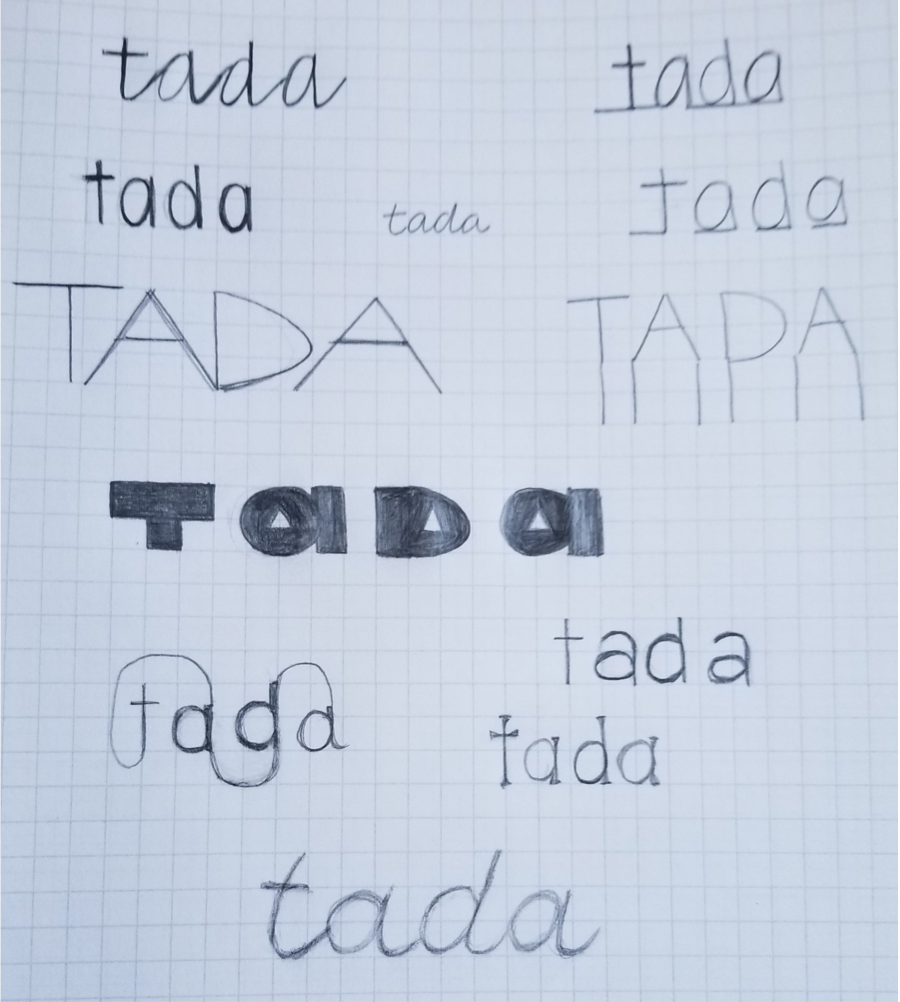 tada
tada
tada
tada
tada
TADA
TADA
TaDa
tada
tada
tada
tada